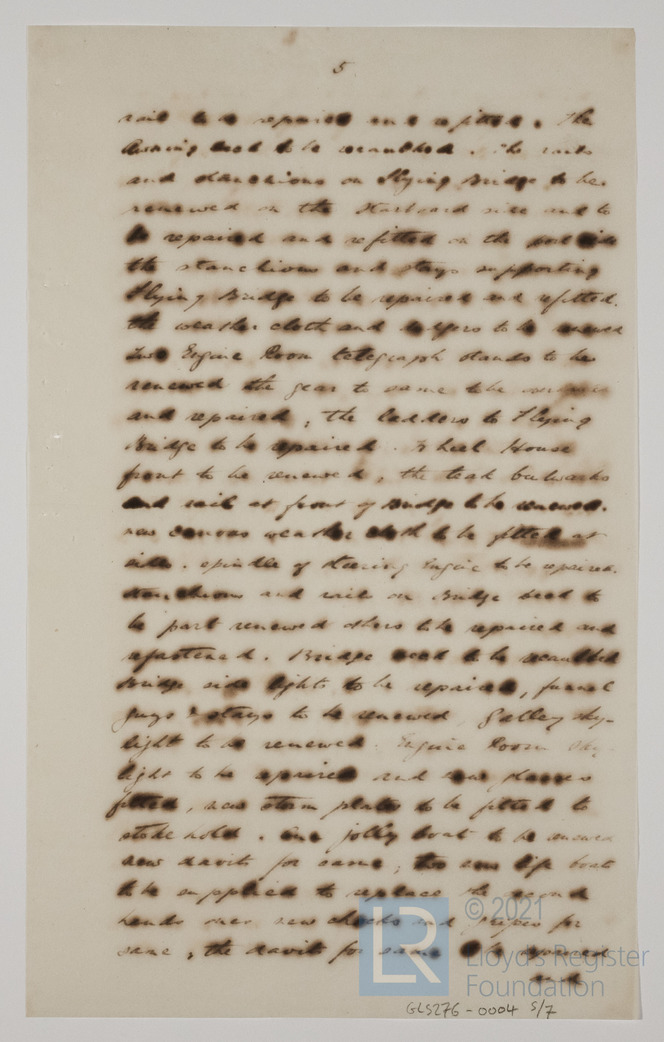 5
rail to be repaired and refitted. The
Awning deck to be recaulked. The rails
and stanchions on Flying Bridge to be
renewed on the Starboard side and to
be repaired and refitted on the port side
the stanchions and stays supporting
Flying Bridge to be repaired and refitted.
the weather cloth and to be renewed
Two Engine Room telegraph stands to be
renewed the gear to same to be
and repaired, the ladders to Flying
Bridge to be repaired. Wheel House
front to be renewed, the teak bulwarks
and rail at front of Bridge to be renewed.
new canvas weather cloth to be fitted at
sides. spindle of steering Engine to be repaired.
stanchions and rails on Bridge deck to
be part renewed others to be repaired and
refastened. Bridge deck to be recaulked
Bridge side lights to be repaired, funnel
guys & stays to be renewed Galley sky-
light to be renewed. Engine Room sky
light to be repaired and new glasses
fitted, new storm plates to be fitted to
stoke hold. One jolly boat to be renewed
new davits for same, two new life boats
to be supplied to replace the second
hand ones new chocks and gripes for
same, the davits for same to be repaired
and
© 2021
Lloyd's Register
Foundation
LR
GLS276-0004 5/7